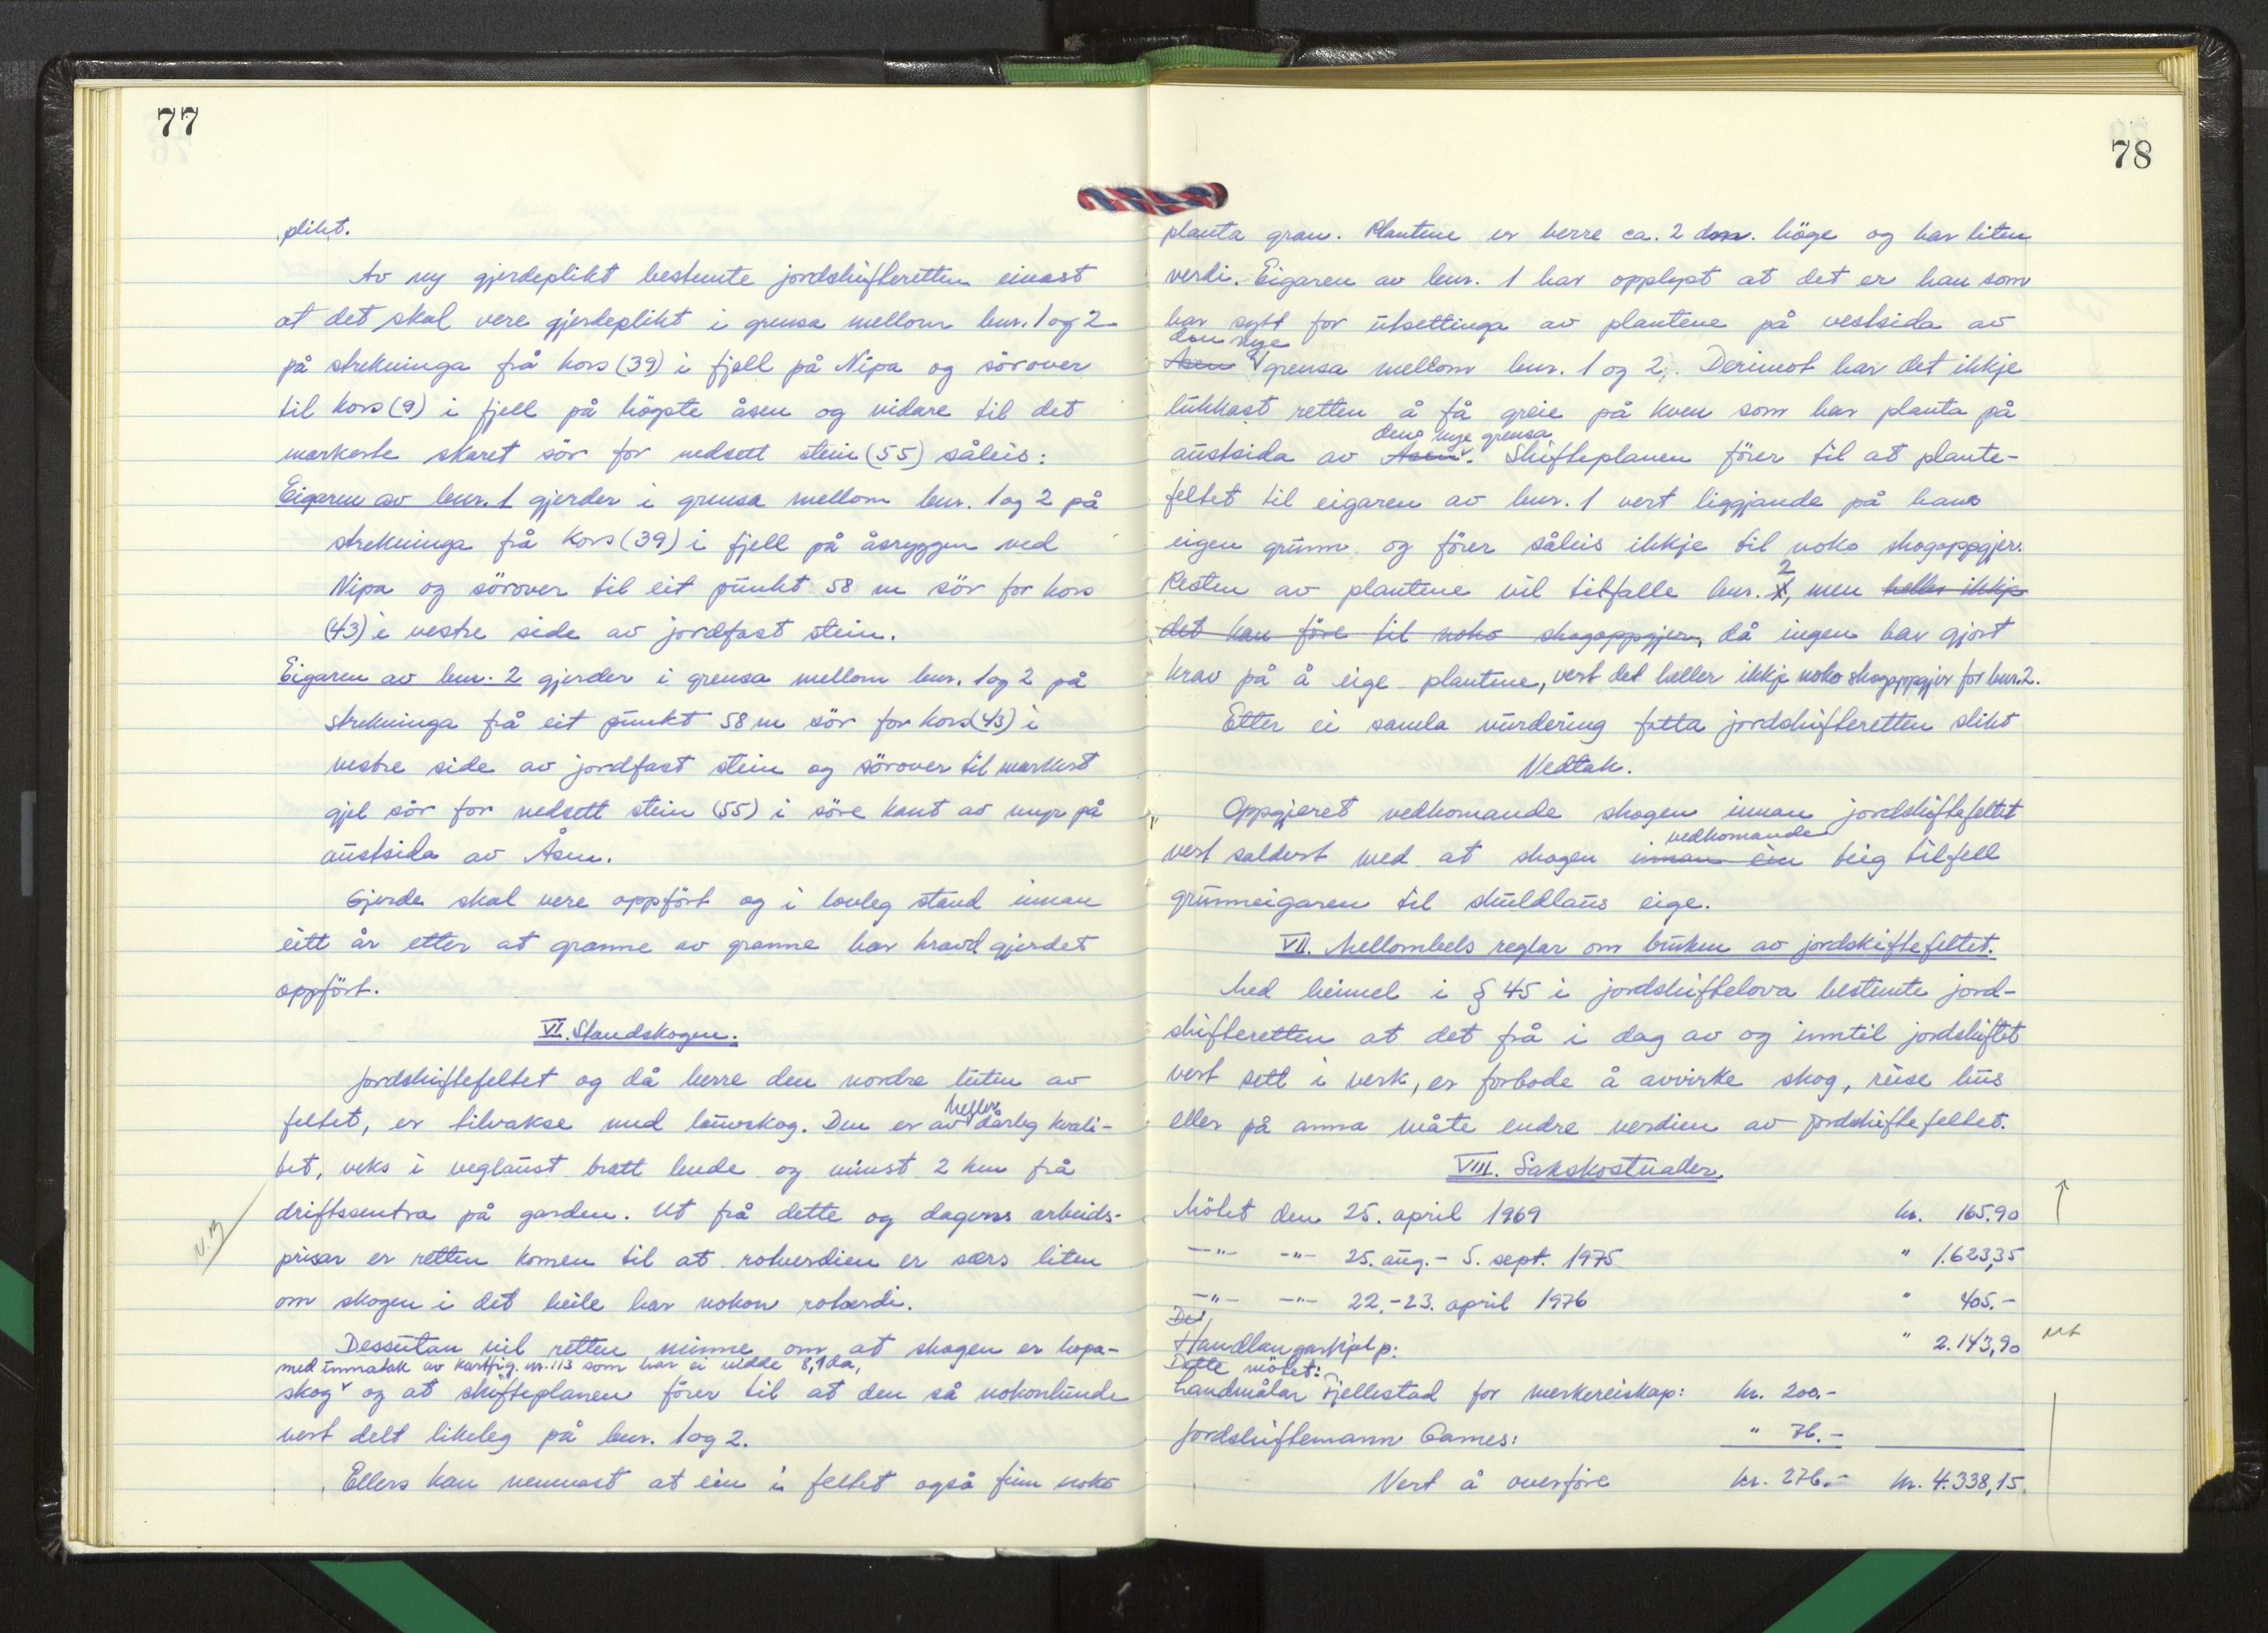 77
plikt.
Av ny gjerdeplikt bestemte jordskifteretten einast
at det skal vere gjerdeplikt i grensa mellom bnr. 1 og 2
på strekninga frå kors (39) i fjell på Nipa og sörover
til kors (9) i fjell på högste åsen og vidare til det
markerte skaret sör for nedsett stein (55) såleis:
Eigaren av bnr. 1 gjerder i grensa mellom bnr. 1 og 2 på
strekninga frå kors (39) i fjell på åsryggen ved
Nipa og sörover til eit punkt 58 m sör for kors
(43) i vestre side av jordfast stein.
Eigaren av bnr. 2 gjerder i grensa mellom bnr. 1 og 2 på
strekninga frå eit punkt 58 m sör for kors (43) i
vestre side av jordfast stein og sörover til markert
gjel sör for nedsett stein (55) i söre kant av myr på
austsida av Åsen.
Gjerde skal vere oppfört og i lovleg stand innan
eitt år etter at granne av granne har kravd gjerdet
oppfört.
VI. Standskogen.
Jordskiftefeltet og då berre den nordre luten av
heller
feltet, er tilvakse med lauvskog. Den er av dårleg kvali-
tet, veks i veglaust bratt lende og minst 2 km frå
driftssentra på garden. Ut frå dette og dagens arbeids-
N.B
prisar er retten komen til at rotverdien er særs liten
om skogen i det heile har nokon rotverdi.
Dessutan vil retten minne om at skogen er hopa-
med unnatak av kartfig. nr. 113 som har ei vidde 8,1 da,
skog og at skifteplanen förer til at den så nokonlunde
vert delt likeleg på bnr. 1 og 2.
Ellers kan nemnast at ein i feltet også finn noko
78
planta gran. Plantene er berre ca. 2 dm. höge og har liten
verdi. Eigaren av bnr. 1 har opplyst at det er han som
har sytt for utsettinga av plantene på vestsida av
den nye
Åsen grensa mellom bnr. 1 og 2. Derimot har det ikkje
lukkast retten å få greie på kven som har planta på
den nye grensa
austsida av Åsen. Skifteplanen förer til at plante-
feltet til eigaren av bnr. 1 vert liggjande på hans
eigen grunn og förer såleis ikkje til noko skogoppgjer.
2
Resten av plantene vil tilfalle bnr. 1, men heller ikkje
det kan före til noko skogoppgjer, då ingen har gjort
krav på å eige plantene, vert det heller ikkje noko skogoppgjer for bnr. 2.
Etter ei samla vurdering fatta jordskifteretten slikt
Vedtak.
Oppgjeret vedkomande skogen innan jordskiftefeltet
vedkomande
vert saldert med at skogen innan ein teig tilfell
grunneigaren til skuldlaus eige.
VII. Mellombels reglar om bruken av jordskiftefeltet.
Med heimel i § 45 i jordskiftelova bestemte jord-
skifteretten at det frå i dag av og inntil jordskiftet
vert sett i verk, er forbode å avvirke skog, reise hus
eller på anna måte endre verdien av jordskiftefeltet.
VIII. Sakskostnader.
Mötet den 25. april 1969 kr. 165.90
—"— —"— 25. aug. - 5. sept. 1975 " 1.623,35
—"— —"— 22.-23. april 1976 " 405.-
Handlangarhjelp: " 2.143,90
Dette mötet:
Landmålar Fjellestad for merkereiskap: kr. 200.-
Jordskiftemann Games: " 76.-
Vert å overföre kr. 276.- kr. 4.338,15.